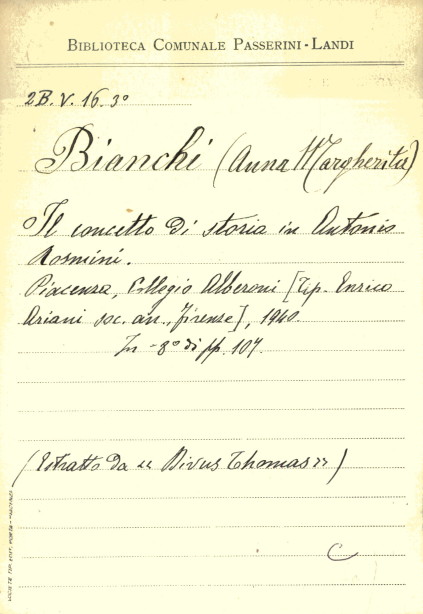 BIBLIOTECA COMUNALE PASSERINI-LANDI
2B. V. 16. 3°
Bianchi (Anna Margherita)
Il concetto di storia in Antonio
Rosmini.
Piacenza, Collegio Alberoni [Tip. Enrico
Ariani soc. an., Firenze], 1940.
In-8° di pp. 107.
(Estratto da « Divus Thomas »)
C